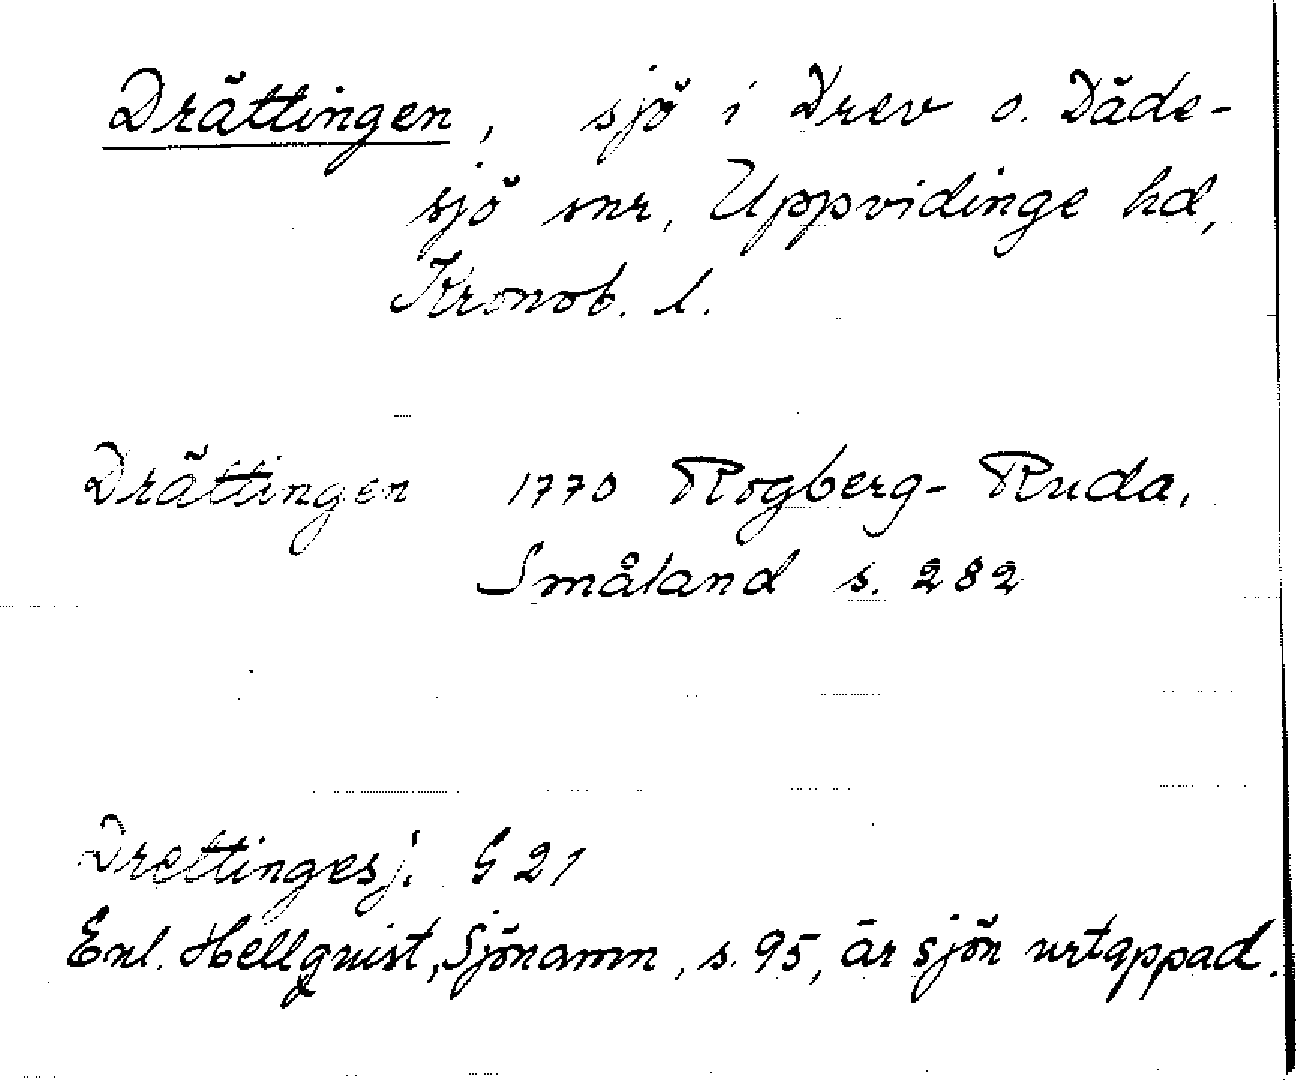 Drättingen, sjö i Drev o. Däde-
sjö snr, Uppvidinge hd,
Kronob. l.
Drättingen 1770 Rogberg-Ruda,
Småland s. 282
Drettingesj. G 21
Enl. Hellquist, Sjönamn, s. 95, är sjön urtappad.